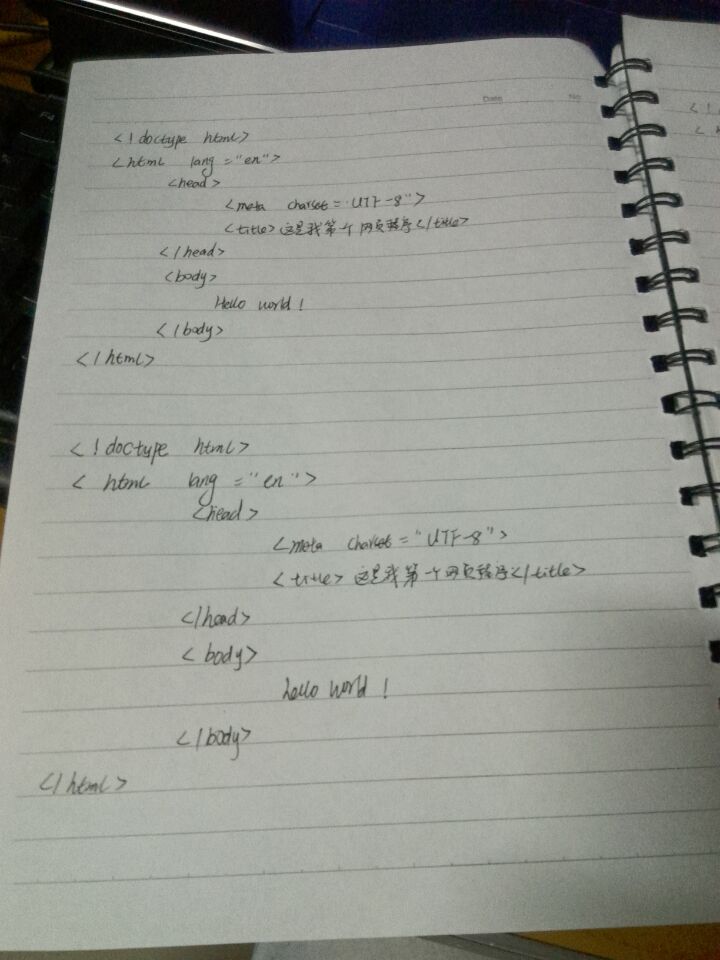 Date
No
<!doctype html>
<html lang="en">
<head>
<meta charset="UTF-8">
<title>这是我第一个网页程序</title>
</head>
<body>
Hello world!
</body>
</html>
<!doctype html>
<html lang="en">
<head>
<meta charset="UTF-8">
<title>这是我第一个网页程序</title>
</head>
<body>
hello world!
</body>
</html>